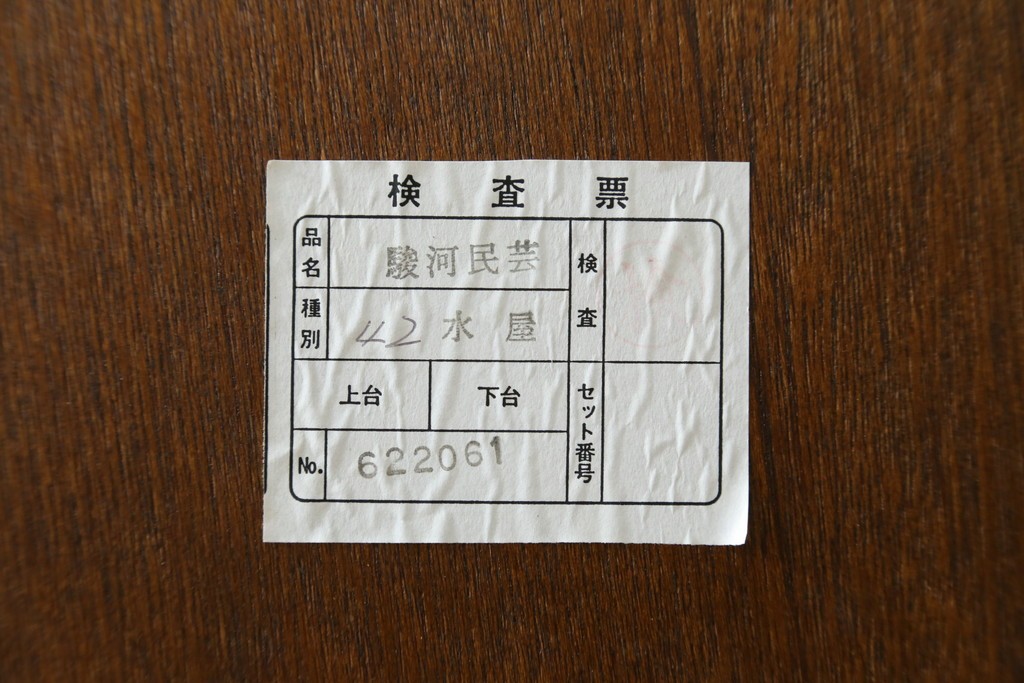 検査票
品名 駿河民芸
検査
種別 42 水屋
上台 下台
セット番号
No. 622061